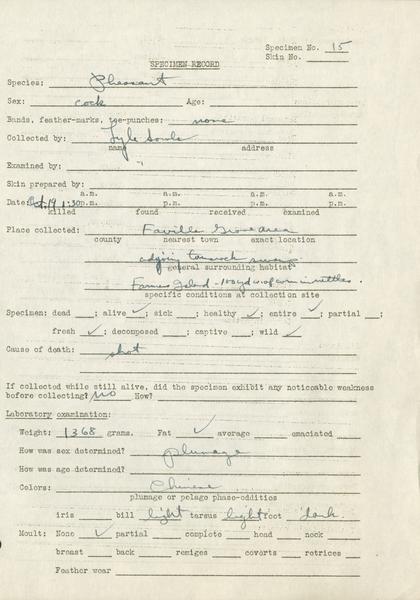 Specimen No. 15
Skin No.
SPECIMEN RECORD
Species: Pheasant
Sex: cock Age:
Bands, feather-marks, toe-punches: none
Collected by: Lyle Sowls
name address
Examined by: "
Skin prepared by:
a.m. a.m. a.m. a.m.
Date: Oct. 19 1:30 p.m. p.m. p.m. p.m.
killed found received examined
Place collected: Faville Grove area
county nearest town exact location
adjoing tamarack
general surrounding habitat
Farmers Island - 100 yd of corn in nettles
specific conditions at collection site
Specimen: dead ; alive ✓; sick ; healthy ✓; entire ✓; partial ;
fresh ✓; decomposed ; captive ; wild ✓
Cause of death: shot
If collected while still alive, did the specimen exhibit any noticable weakness
before collecting? No How?
Laboratory examination:
Weight: 1368 grams. Fat ✓ average emaciated
How was sex determined? plumage
How was age determined?
Colors: Chinese
plumage or pelage phase-oddities
iris bill light tarsus light foot dark
Moult: None ✓ partial complete head neck
breast back remiges coverts retrices
Feather wear